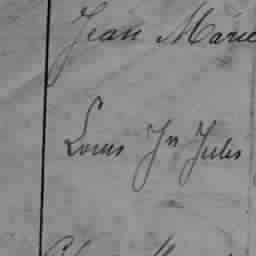 Jean Marie
Louis Jn Jules